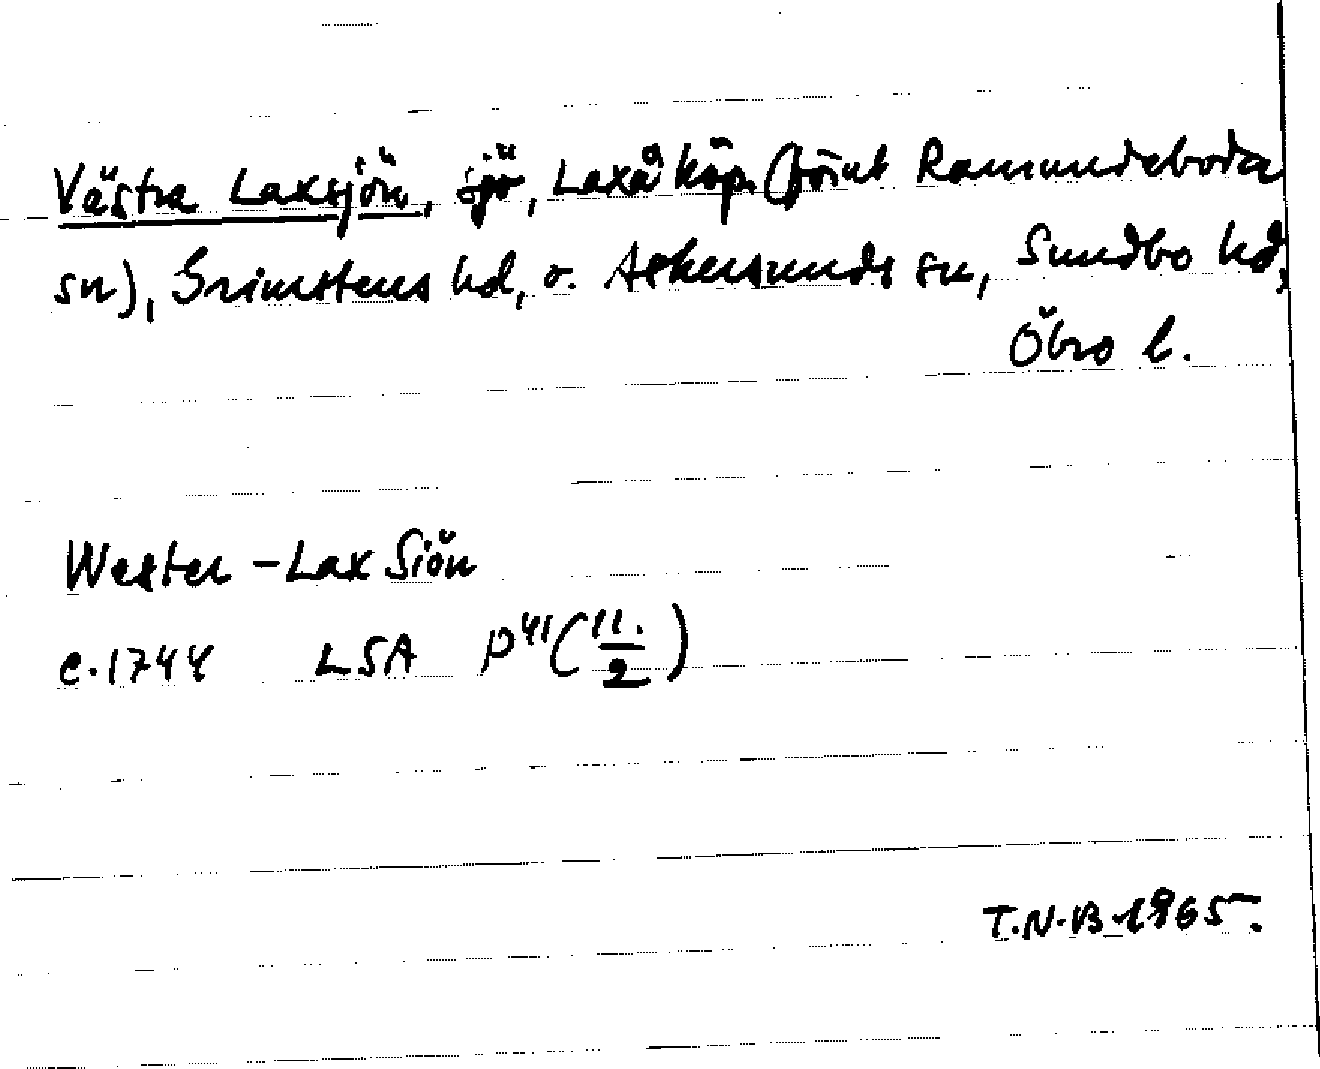 Västra Laxsjön, sjö, Laxå köp. (förut Ramundeboda
sn), Grimstens hd, o. Askersunds sn, Sundbo hd,
Öbro l.
Wester-Lax Siön
c. 1744 LSA P41 (11./2)
T.N.B 1965.